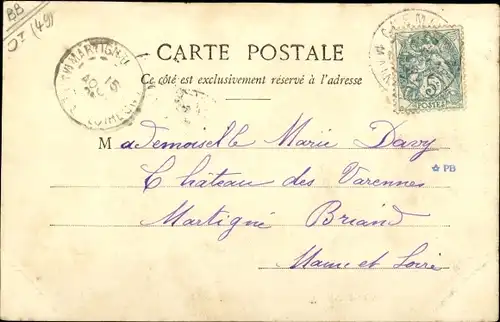 BB
(49)
MARTIGNÉ
15
CARTE POSTALE
Ce côté est exclusivement réservé à l'adresse
5
POSTES
Mademoiselle Marie Davy
Château des Varennes
☆ PB
Martigné Briand
Maine et Loire